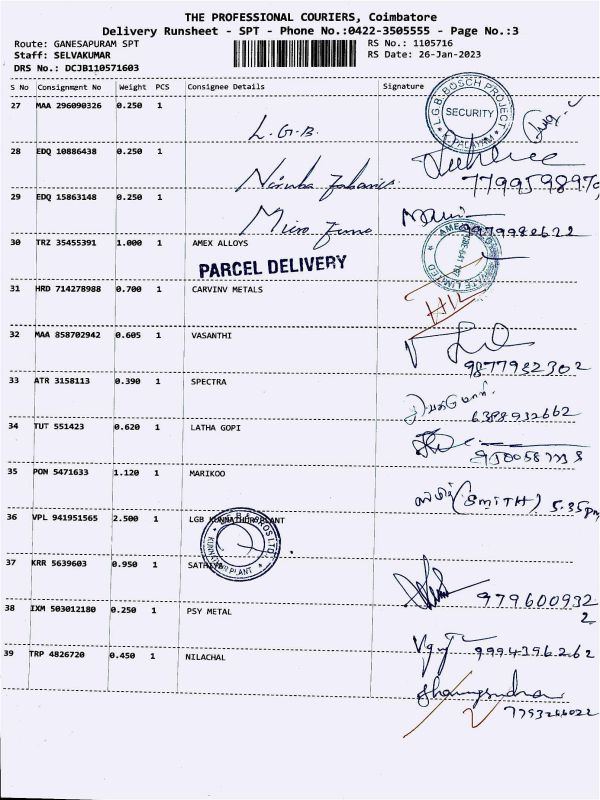 THE PROFESSIONAL COURIERS, Coimbatore
Delivery Runsheet - SPT - Phone No.:0422-3505555 - Page No.:3
Route: GANESAPURAM SPT
RS No.: 1105716
Staff: SELVAKUMAR
RS Date: 26-Jan-2023
DRS No.: DCJB110571603
S No Consignment No Weight PCS Consignee Details Signature
27 MAA 296090326 0.250 1
L.G.B.
L.G.B-BOSCH PROJECT
SECURITY
28 EDQ 10886438 0.250 1
29 EDQ 15863148 0.250 1
Micro
9979980622
30 TRZ 35455391 1.000 1 AMEX ALLOYS
PARCEL DELIVERY
31 HRD 714278988 0.700 1 CARVINV METALS
32 MAA 858702942 0.605 1 VASANTHI
9877932302
33 ATR 3158113 0.390 1 SPECTRA
6388932662
34 TUT 551423 0.620 1 LATHA GOPI
35 PON 5471633 1.120 1 MARIKOO
(SMITH) 5.35pm
36 VPL 941951565 2.500 1 LGB KUNNATHUR PLANT
37 KRR 5639603 0.950 1 SATHYA
9796009322
38 IXM 503012180 0.250 1 PSY METAL
9994396262
39 TRP 4826720 0.450 1 NILACHAL
7793266022